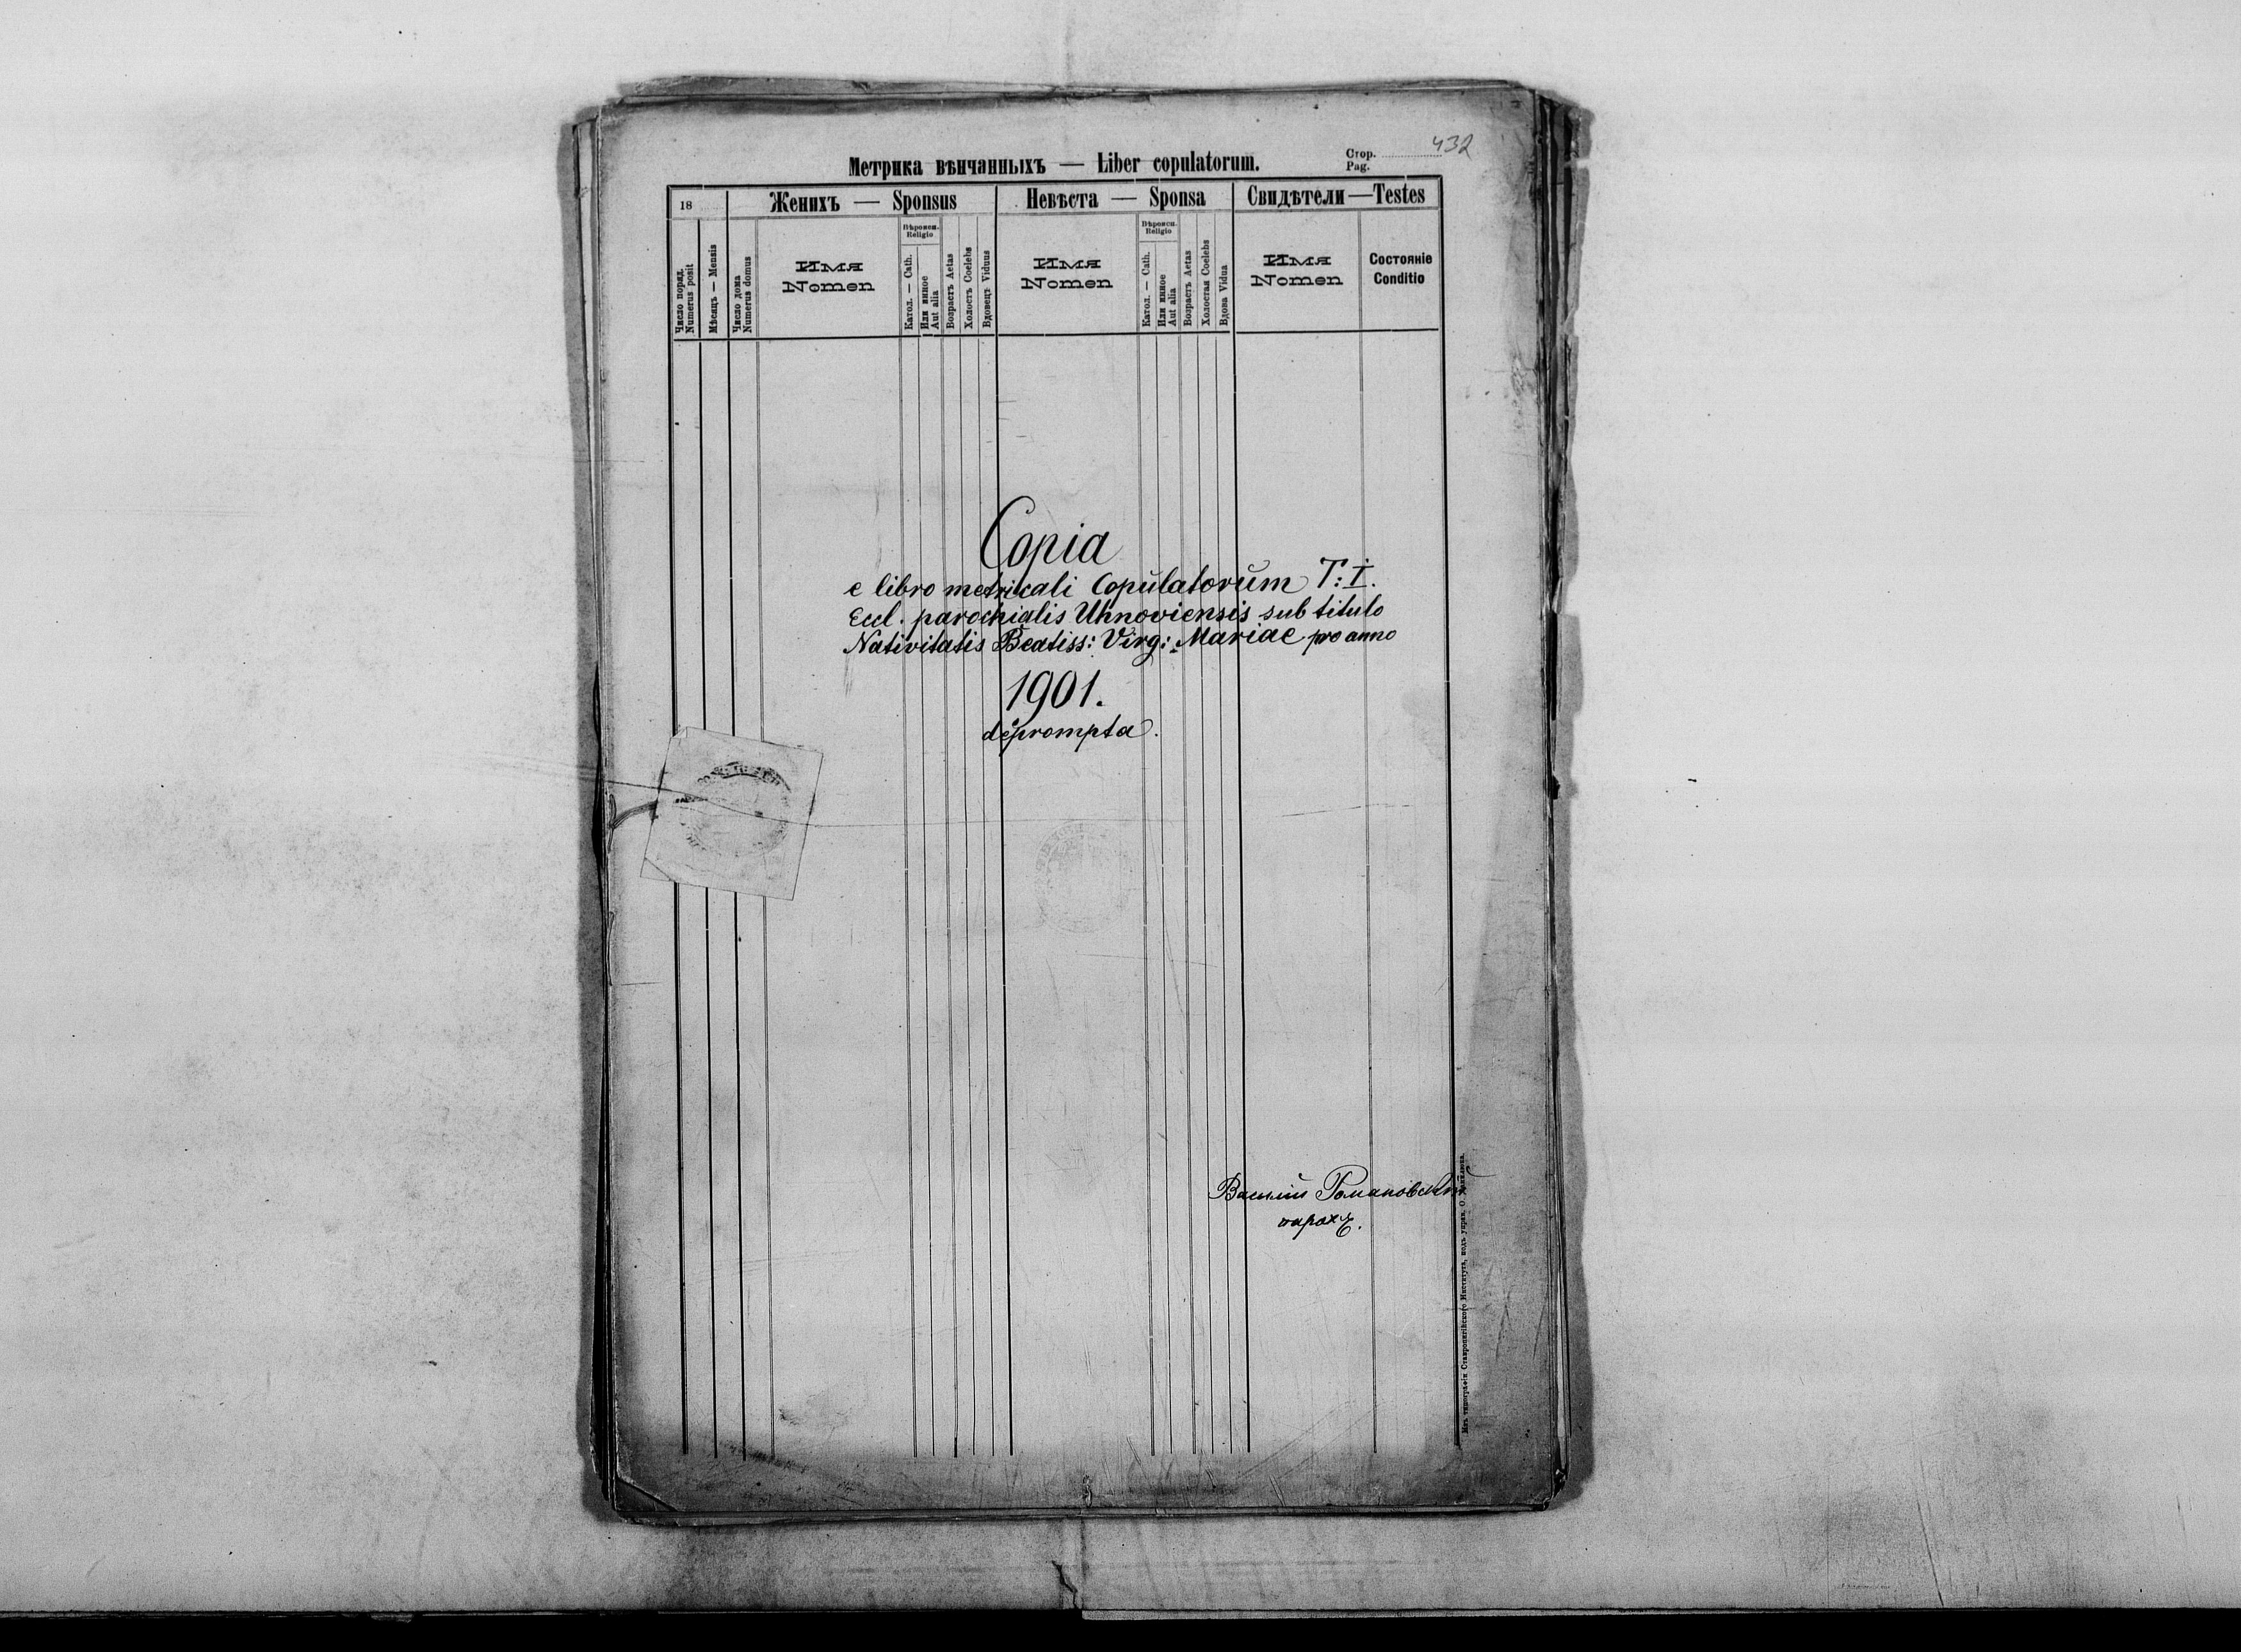 432
Метрика вѣнчанныхъ — Liber copulatorum.
Стор.
Pag.
18
Женихъ — Sponsus
Невѣста — Sponsa
Свидѣтели — Testes
Число поряд.
Numerus posit
Мѣсяцъ — Mensis
Число дома
Numerus domus
Имя
Nomen
Вѣроисп.
Religio
Катол. — Cath.
Или инное
Aut alia
Возрастъ Aetas
Холостъ Coelebs
Вдовецъ Viduus
Имя
Nomen
Вѣроисп.
Religio
Катол. — Cath.
Или инное
Aut alia
Возрастъ Aetas
Холостая Coelebs
Вдова Vidua
Имя
Nomen
Состояніе
Conditio
Copia
e libro metricali Copulatorum T: I.
Eccl. parochialis Uhnoviensis sub titulo
Nativitatis Beatiss: Virg: Mariae pro anno
1901.
deprompta.
Василій Романовскій
парохъ.
Изъ типографіи Ставропигійского Института, подъ управ. О.